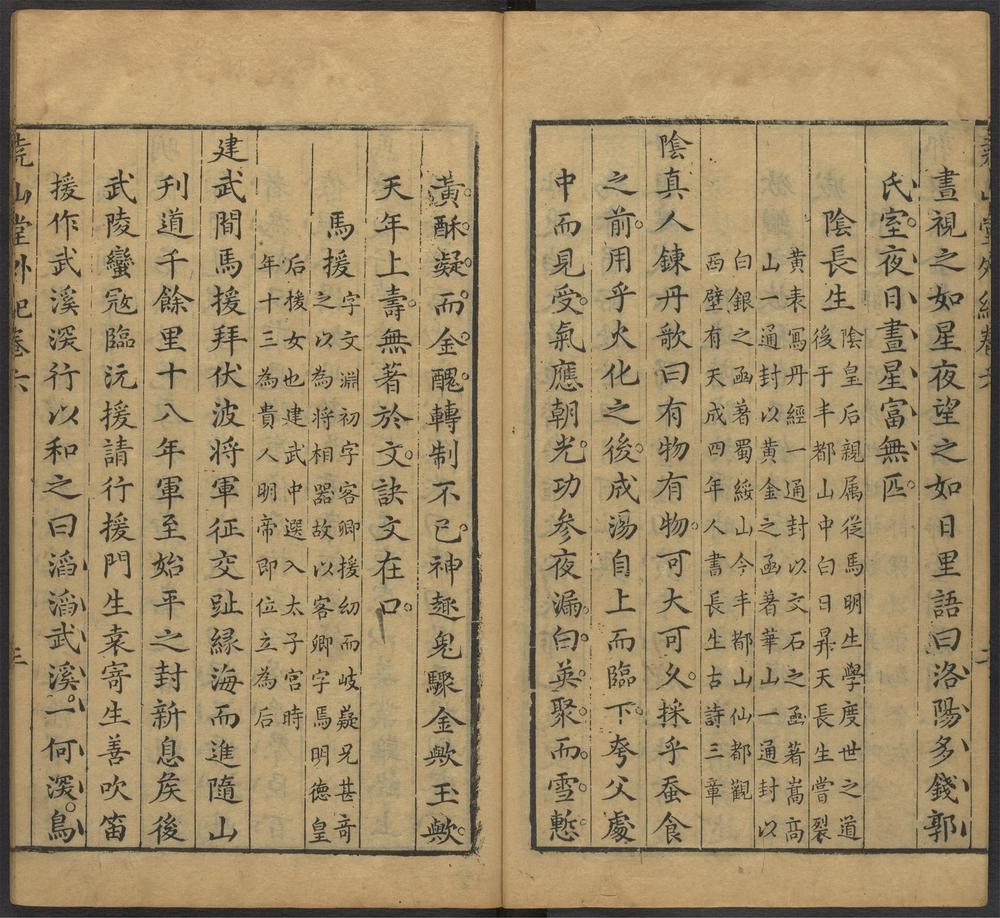 晝視之如星夜望之如日里語曰洛陽多錢郭
氏室夜日晝星富無匹
陰長生
陰皇后親属從馬明生學度世之道
後于丰都山中白日昇天長生嘗裂
黄表寫丹經一通封以文石之函著嵩高
山一通封以黄金之函著華山一通封以
白銀之函著蜀綏山今丰都山仙都觀
西壁有天成四年人書長生古詩三章
陰真人鍊丹歌曰有物有物可大可久採乎蚕食
之前用乎火化之後成湯自上而臨下夸父處
中而見受氣應朝光功参夜漏白英聚而雪慙
黄酥凝而金醜轉制不已神趂鬼驟金歟玉歟
天年上壽無著於文訣文在口
馬援
字文淵初字客卿援幼而岐嶷兄甚奇
之以為將相器故以客卿字焉明德皇
后援女也建武中選入太子宫時
年十三為貴人明帝即位立為后
建武間馬援拜伏波將軍征交趾緣海而進隨山
刋道千餘里十八年軍至始平之封新息矦後
武陵蠻冦臨沅援請行援門生袁寄生善吹笛
援作武溪深行以和之曰滔滔武溪一何深鳥
堯山堂外紀卷六